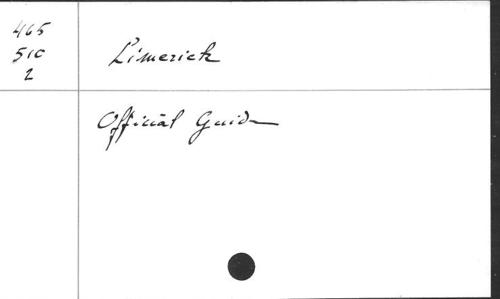 465
51C
2
Limerick
Official Guide